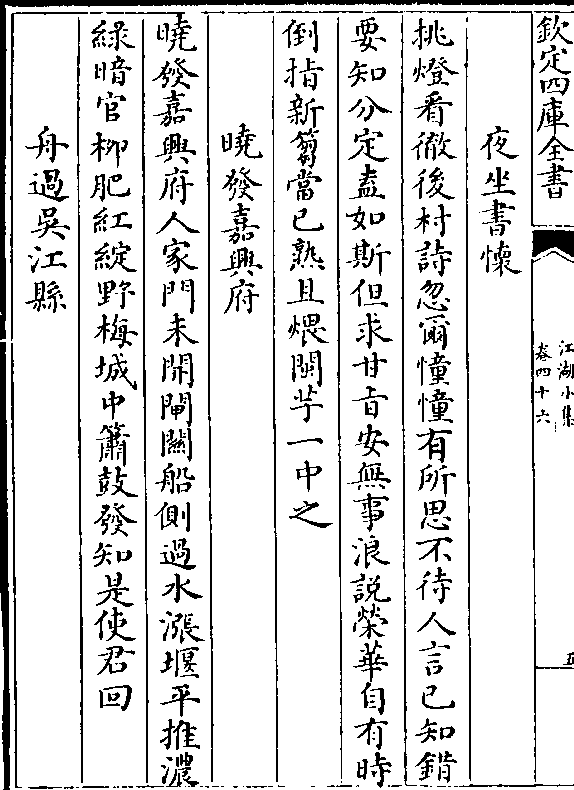 欽定四庫全書
江湖小集
卷四十六
五
夜坐書懷
挑燈看徹後村詩忽爾憧憧有所思不待人言已知錯
要知分定盡如斯但求甘旨安無事浪說榮華自有時
倒指新篘當已熟且煨閩芋一中之
曉發嘉興府
曉發嘉興府人家門未開閘關船側過水漲堰平推濃
綠暗官柳肥紅綻野梅城中簫鼓發知是使君回
舟過吳江縣